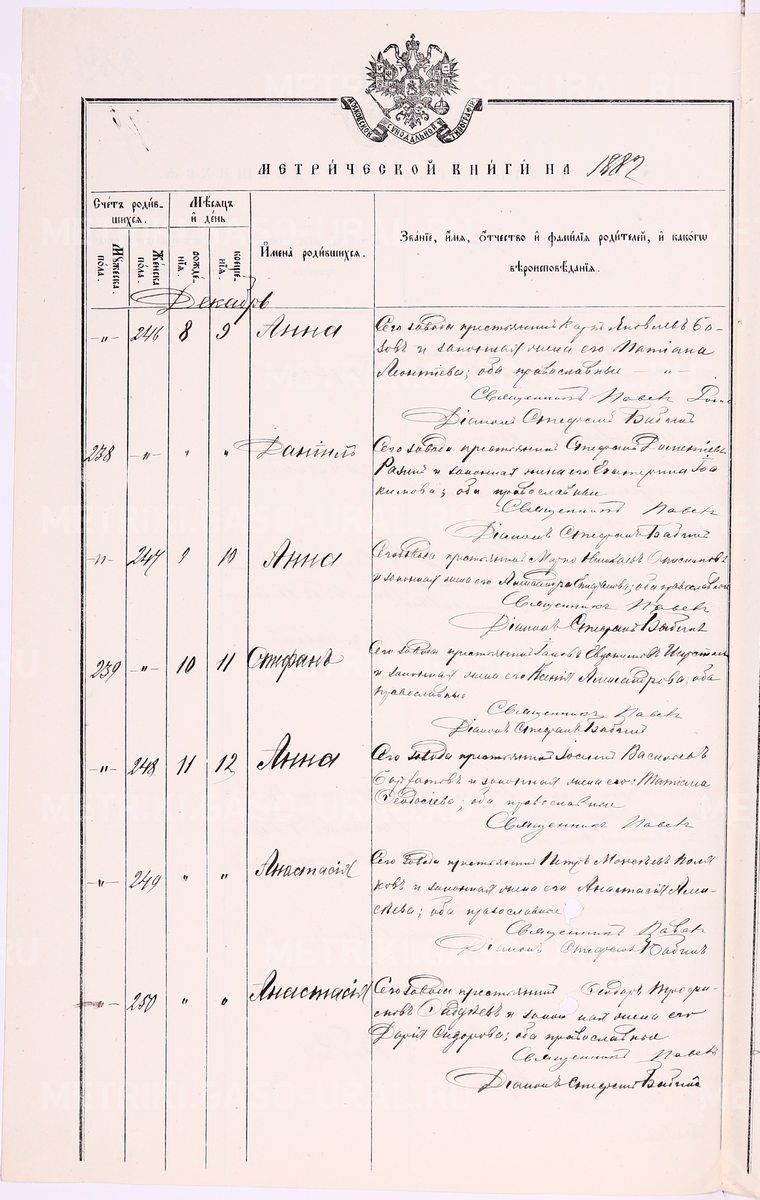 МОСКОВСКОЙ СѴНОДАЛЬНОЙ ТИПОГРАФІИ
МЕТРИ́ЧЕСКОЙ КНИ́ГИ НА 1887
Сче́тъ роди́в-
шихся.
Мѣ́сяцъ
и҆ де́нь
Мꙋ́жеска по́ла.
Же́нска по́ла.
рожде́нїѧ.
креще́нїѧ.
И҆мена̀ роди́вшихся.
Зва́нїе, и҆́мѧ, ѻ҆́тчество и҆ фами́лїѧ роди́телей, и҆ како́гѡ
вѣроисповѣ́данїѧ.
Декабрь
-"- 246 8 9 Анна Сего завода крестьянин Яковлевъ
и законная жена его Татiана
Леонтiева; оба православные -"-
Священникъ Павел
Дiаконъ Стефанъ Бабинъ
238 -"- " " Данiилъ Сего завода крестьянин Стефан
и законная жена его Екатерина Iоа
кимова; оба православные
Священникъ Павел
Дiаконъ Стефанъ Бабинъ
-"- 247 9 10 Анна Сего завода крестьянин
и законная жена его Александра оба православные
Священникъ Павел
Дiаконъ Стефанъ Бабинъ
239 -"- 10 11 Стефанъ Сего завода крестьянин Iаковъ Евдокимовъ
и законная жена его Ксенiя Александрова; оба
православные
Священникъ Павел
Дiаконъ Стефанъ Бабинъ
-"- 248 11 12 Анна Сего завода крестьянин Iосифъ Васильевъ
и законная жена его Татiана
Феодосiева; оба православные
Священникъ Павел
-"- 249 " " Анастасiя Сего завода крестьянин Петръ Моисеевъ Поля
ковъ и законная жена его Анастасiя Алек-
сѣева; оба православные
Священникъ Павел
Дiаконъ Стефанъ Бабинъ
-"- 250 " " Анастасiя Сего завода крестьянин Феодоръ
и законная жена его
Дарiя Сидорова; оба православные
Священникъ Павел
Дiаконъ Стефанъ Бабинъ